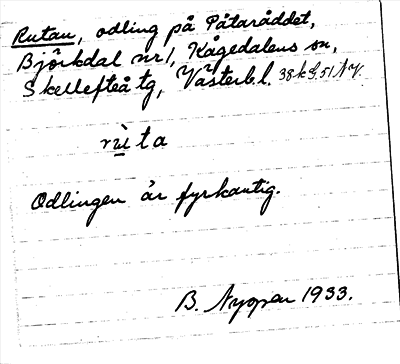 Rutan, odling på Påtaråddet,
Björkdal nr 1, Kågedalens sn,
Skellefteå tg, Västerb.l. 38kG.51NV.
rùta
Odlingen är fyrkantig.
B. Nygren 1933.